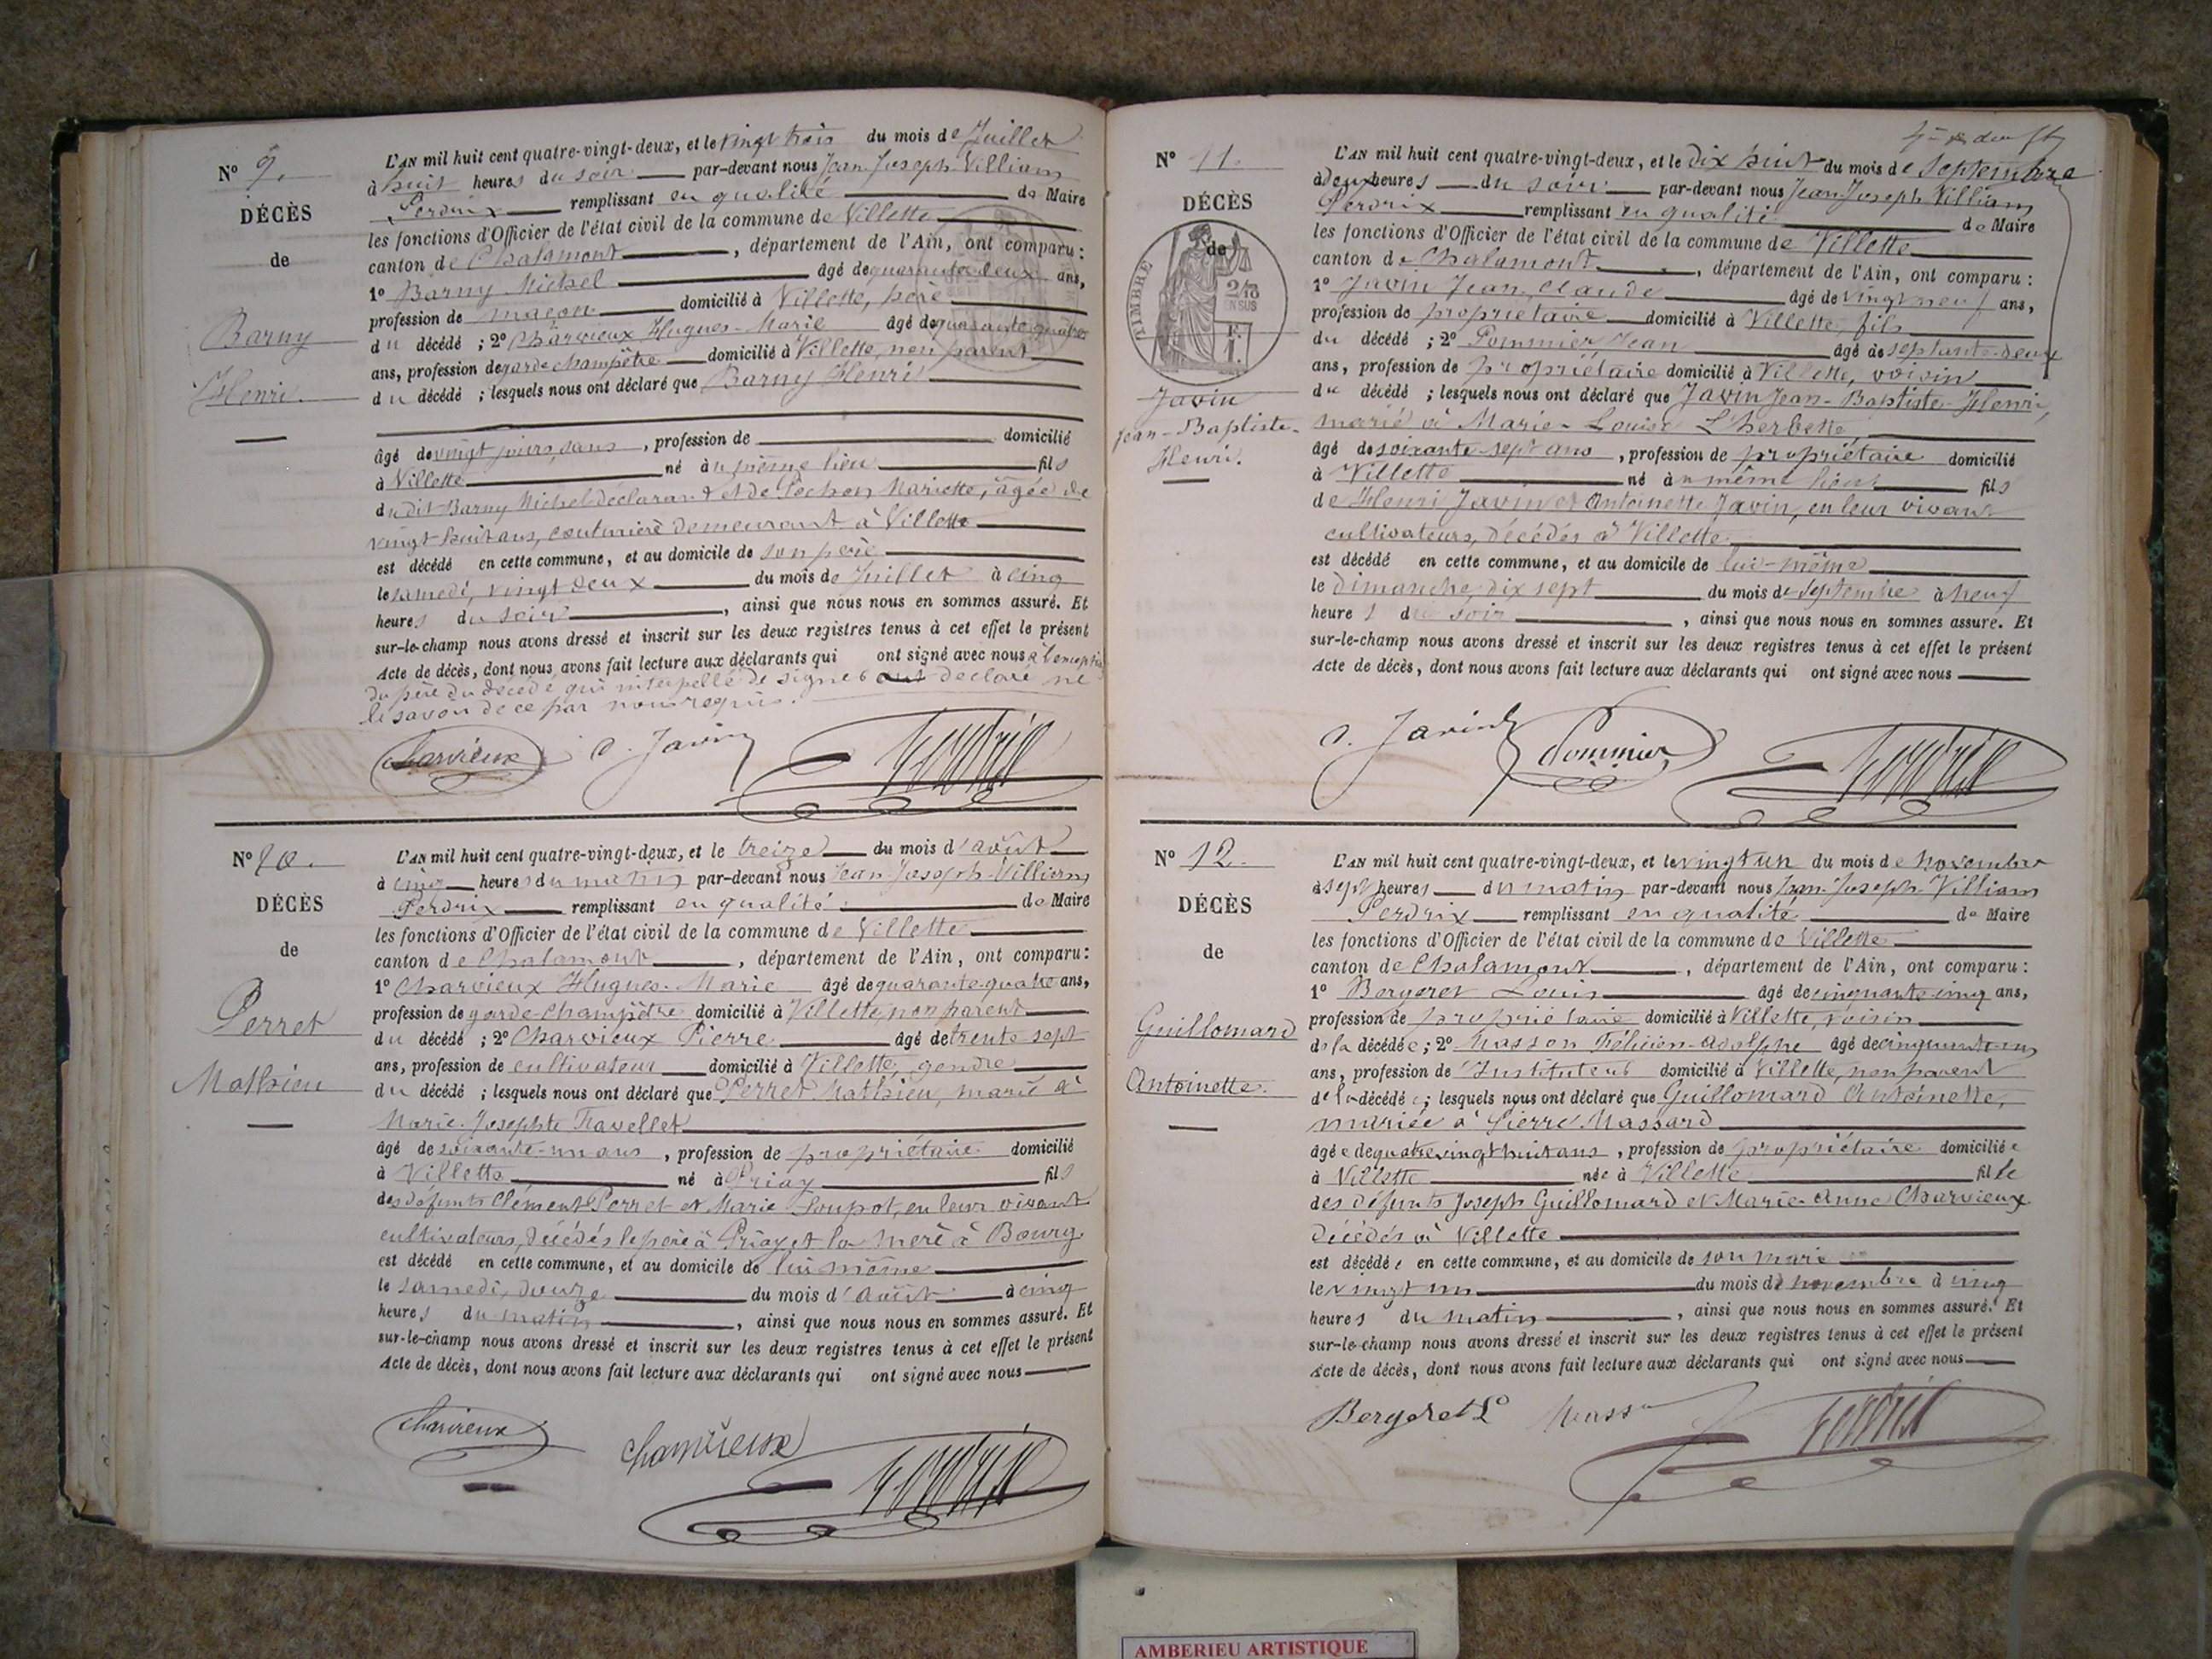 N° 9.
DÉCÈS
de
Barny
Henri.
L'AN mil huit cent quatre-vingt-deux, et le vingt trois du mois de Juillet
à huit heures du soir par-devant nous Jean Joseph Villiam
Perdrix remplissant en qualité de Maire
les fonctions d'Officier de l'état civil de la commune de Villette
canton de Chalamont, département de l'Ain, ont comparu :
1° Barny Michel âgé de quarante deux ans,
profession de maçon domicilié à Villette, père
du décédé ; 2° Charvieux Hugues-Marie âgé de quarante quatre
ans, profession de garde champêtre domicilié à Villette, non parent
du décédé ; lesquels nous ont déclaré que Barny Henri
âgé de vingt jours, sans, profession de domicilié
à Villette né au même lieu fils
dudit Barny Michel déclarant et de Pochon Mariette, âgée de
vingt huit ans, couturière demeurant à Villette
est décédé en cette commune, et au domicile de son père
le samedi, vingt deux du mois de Juillet à cinq
heures du soir, ainsi que nous nous en sommes assuré. Et
sur-le-champ nous avons dressé et inscrit sur les deux registres tenus à cet effet le présent
Acte de décès, dont nous avons fait lecture aux déclarants qui ont signé avec nous à l'exception
du père du décédé qui interpellé de signer a déclaré ne
le savoir de ce par nous requis.
Charvieux J. Javin Perdrix
N° 10.
DÉCÈS
de
Perret
Mathieu
L'AN mil huit cent quatre-vingt-deux, et le treize du mois d'août
à cinq heures du matin par-devant nous Jean-Joseph-Villiam
Perdrix remplissant en qualité de Maire
les fonctions d'Officier de l'état civil de la commune de Villette
canton de Chalamont, département de l'Ain, ont comparu :
1° Charvieux Hugues-Marie âgé de quarante-quatre ans,
profession de garde-champêtre domicilié à Villette non parent
du décédé ; 2° Charvieux Pierre âgé de trente sept
ans, profession de cultivateur domicilié à Villette, gendre
du décédé ; lesquels nous ont déclaré que Perret Mathieu, marié à
Marie-Josephte Travellet
âgé de soixante-un ans, profession de propriétaire domicilié
à Villette né à Priay fils
des défunts Clément Perret et Marie Loupot, en leur vivant
cultivateurs, décédés le père à Priay et la mère à Bourg.
est décédé en cette commune, et au domicile de lui même
le samedi, douze du mois d'août à cinq
heures du matin, ainsi que nous nous en sommes assuré. Et
sur-le-champ nous avons dressé et inscrit sur les deux registres tenus à cet effet le présent
Acte de décès, dont nous avons fait lecture aux déclarants qui ont signé avec nous
Charvieux Charvieux Perdrix
N° 11.
DÉCÈS
de
TIMBRE
2/10
EN SUS
Javin
Jean-Baptiste-
Henri.
L'AN mil huit cent quatre-vingt-deux, et le dix huit du mois de Septembre
à deux heures du soir par-devant nous Jean-Joseph Villiam
Perdrix remplissant en qualité de Maire
les fonctions d'Officier de l'état civil de la commune de Villette
canton de Chalamont, département de l'Ain, ont comparu :
1° Javin Jean-Claude âgé de vingt neuf ans,
profession de propriétaire domicilié à Villette, fils
du décédé ; 2° Pommier Jean âgé de septante-deux
ans, profession de propriétaire domicilié à Villette, voisin
du décédé ; lesquels nous ont déclaré que Javin Jean-Baptiste-Henri,
marié à Marie-Louise L'herbette
âgé de soixante-sept ans, profession de propriétaire domicilié
à Villette né au même lieu fils
de Henri Javin et Antoinette Javin, en leur vivant
cultivateurs, décédés à Villette
est décédé en cette commune, et au domicile de lui-même
le Dimanche, dix sept du mois de Septembre à neuf
heures du soir, ainsi que nous nous en sommes assuré. Et
sur-le-champ nous avons dressé et inscrit sur les deux registres tenus à cet effet le présent
Acte de décès, dont nous avons fait lecture aux déclarants qui ont signé avec nous
J. Javin Pommier Perdrix
N° 12.
DÉCÈS
de
Guillomard
Antoinette.
L'AN mil huit cent quatre-vingt-deux, et le vingt un du mois de novembre
à sept heures du matin par-devant nous Jean-Joseph-Villiam
Perdrix remplissant en qualité de Maire
les fonctions d'Officier de l'état civil de la commune de Villette
canton de Chalamont, département de l'Ain, ont comparu :
1° Bergeret Louis âgé de cinquante-cinq ans,
profession de propriétaire domicilié à Villette, voisin
de la décédée ; 2° Masson Félicien-Adolphe âgé de cinquante-un
ans, profession de Instituteur domicilié à Villette, non parent
de la décédée ; lesquels nous ont déclaré que Guillomard Antoinette,
mariée à Pierre Massard
âgée de quatre vingt huit ans, profession de propriétaire domiciliée
à Villette née à Villette fille
des défunts Joseph Guillomard et Marie-Anne Charvieux
décédés à Villette
est décédée en cette commune, et au domicile de son mari
le vingt un du mois de novembre à cinq
heures du matin, ainsi que nous nous en sommes assuré. Et
sur-le-champ nous avons dressé et inscrit sur les deux registres tenus à cet effet le présent
Acte de décès, dont nous avons fait lecture aux déclarants qui ont signé avec nous
Bergeret L Masson Perdrix
AMBERIEU ARTISTIQUE